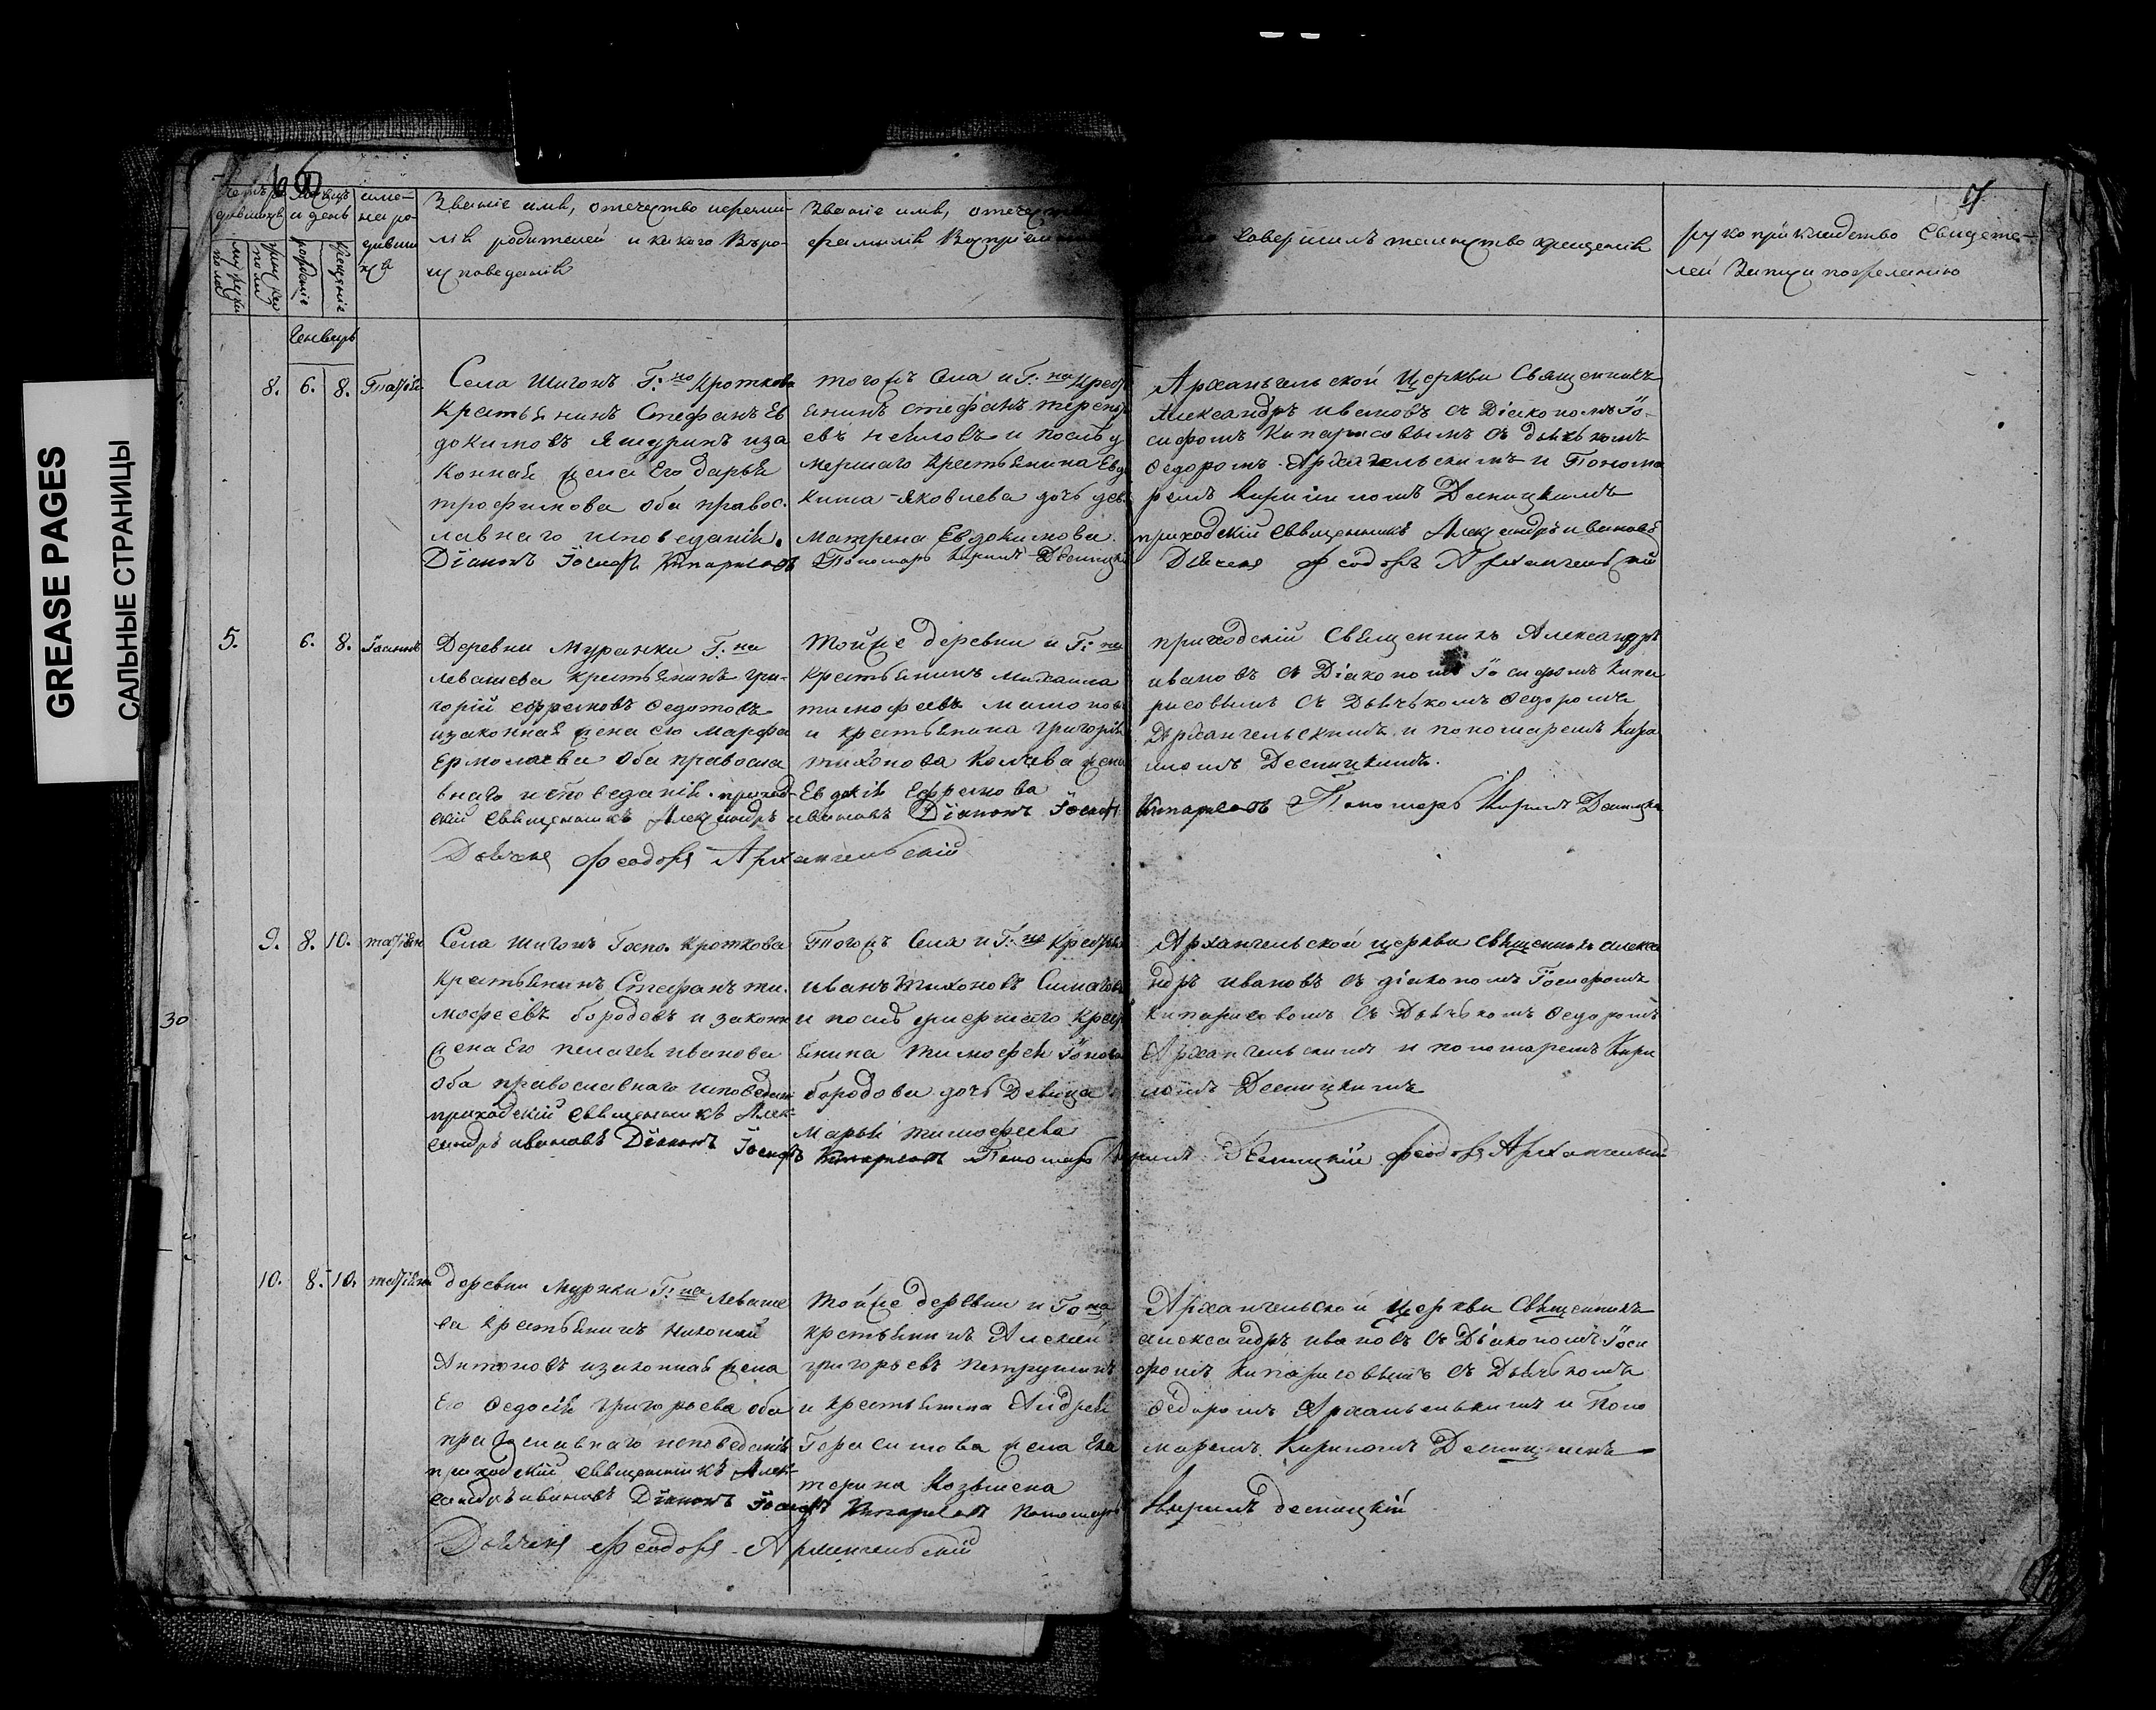 GREASE PAGES
САЛЬНЫЕ СТРАНИЦЫ
7
Мѣсяцъ
и день
име-
на ро-
дивши
хся
Званіе имя, отечество и фами-
лія родителей и какого Веро-
исповеданія
Званіе имя, отечество
фамилія Воспріем
Совершилъ таинство крещенія
рукоприкладство Свидете-
лей Записи по желанію
рожденіе
крещеніе
Генварь
8. 6. 8. Татіа
Села Шигонъ Г:на Кроткова
Крестьянинъ Стефанъ Ев
докимовъ Яшуринъ и за
конная жена Его Дарья
трофимова оба правос.
лавнаго исповеданія.
Діаконъ Іосифъ Кипарисовъ
тогожъ Села и Г:на Крест
янинъ стефанъ терент
евъ и послѣ у
мершаго Крестьянина Евдо
кима Яковлева дочь дев.
Матрена Евдокимова.
Пономарь Кирилъ Десницкій
Архангельской Церкви Священникъ
Александръ ивановъ съ Діакономъ Іо-
сифомъ Кипарисовымъ съ дьячкомъ
Ѳедоромъ Архангельскимъ и Понома
ремъ Кирилломъ Десницкимъ
приходскій Священникъ Александръ ивановъ
Дьячекъ Феодоръ Архангельскій
5. 6. 8. Іоаннъ
Деревни Муранки Г:на
Левашева крестьянинъ Гри-
горій ефремовъ Ѳедотовъ
и законная жена его Марфа
Ермолаева Оба правосла
внаго исповеданія. приход-
скій Священникъ Александръ ивановъ Діаконъ Іосифъ
Дьячекъ Феодоръ Архангельскій
Тойже деревни и Г:на
Крестьянинъ Михаила
тимофеевъ
и крестьянина Григорія
тихонова жена
Евдокія Ефремова
приходскій Священникъ Александръ
ивановъ съ Діакономъ Іосифомъ Кипа
рисовымъ съ Дьячькомъ Ѳедоромъ
Архангельскимъ и пономаремъ Кири
ломъ Десницкимъ.
Кипарисовъ Пономарь Кирилъ Десницкій
9. 8. 10. татіан
Села Шигонъ Госпо. Кроткова
Крестьянинъ Стефанъ ти.
мофеевъ бородовъ и законн
жена Его пелагея иванова
оба православнаго исповедан
приходскій Священникъ Алек-
сандръ ивановъ Діаконъ Іосифъ Кипарисовъ Пономарь Кирилъ Десницкій Феодоръ Архангельскій
Тогожъ Села и Г:на Крестья
иванъ Тихоновъ
и послѣ умершаго Крест
янина тимофея
бородова дочь Девица
Марья тимофеева
Архангельской церкви священникъ алекса
ндръ ивановъ съ діакономъ Іосифомъ
Кипарисовомъ съ Дьячькомъ Ѳедоромъ
Архангельскимъ и пономаремъ Кири
ломъ Десницкимъ
30
10. 8. 10. татіан
деревни Муранки Г:на Леваше
ва крестьянинъ николай
Антоновъ и законная жена
Его Ѳедосія григорьева оба
православнаго исповеданія
приходскій священникъ Алек-
сандръ ивановъ Діаконъ Іосифъ Кипарисовъ Пономарь Кирилъ десницкій
Дьячекъ Феодоръ Архангельскій
Тойже деревни и Го на
крестьянинъ Алексей
григорьевъ петрушинъ
и крестьянина Андрея
Герасимова жена Ека
терина Козьмина
Архангельской Церкви Священникъ
александръ ивановъ съ Діакономъ Іоси
фомъ Кипарисовымъ съ Дьячькомъ
Ѳедоромъ Архангельскимъ и Поно
маремъ Кириломъ Десницкимъ